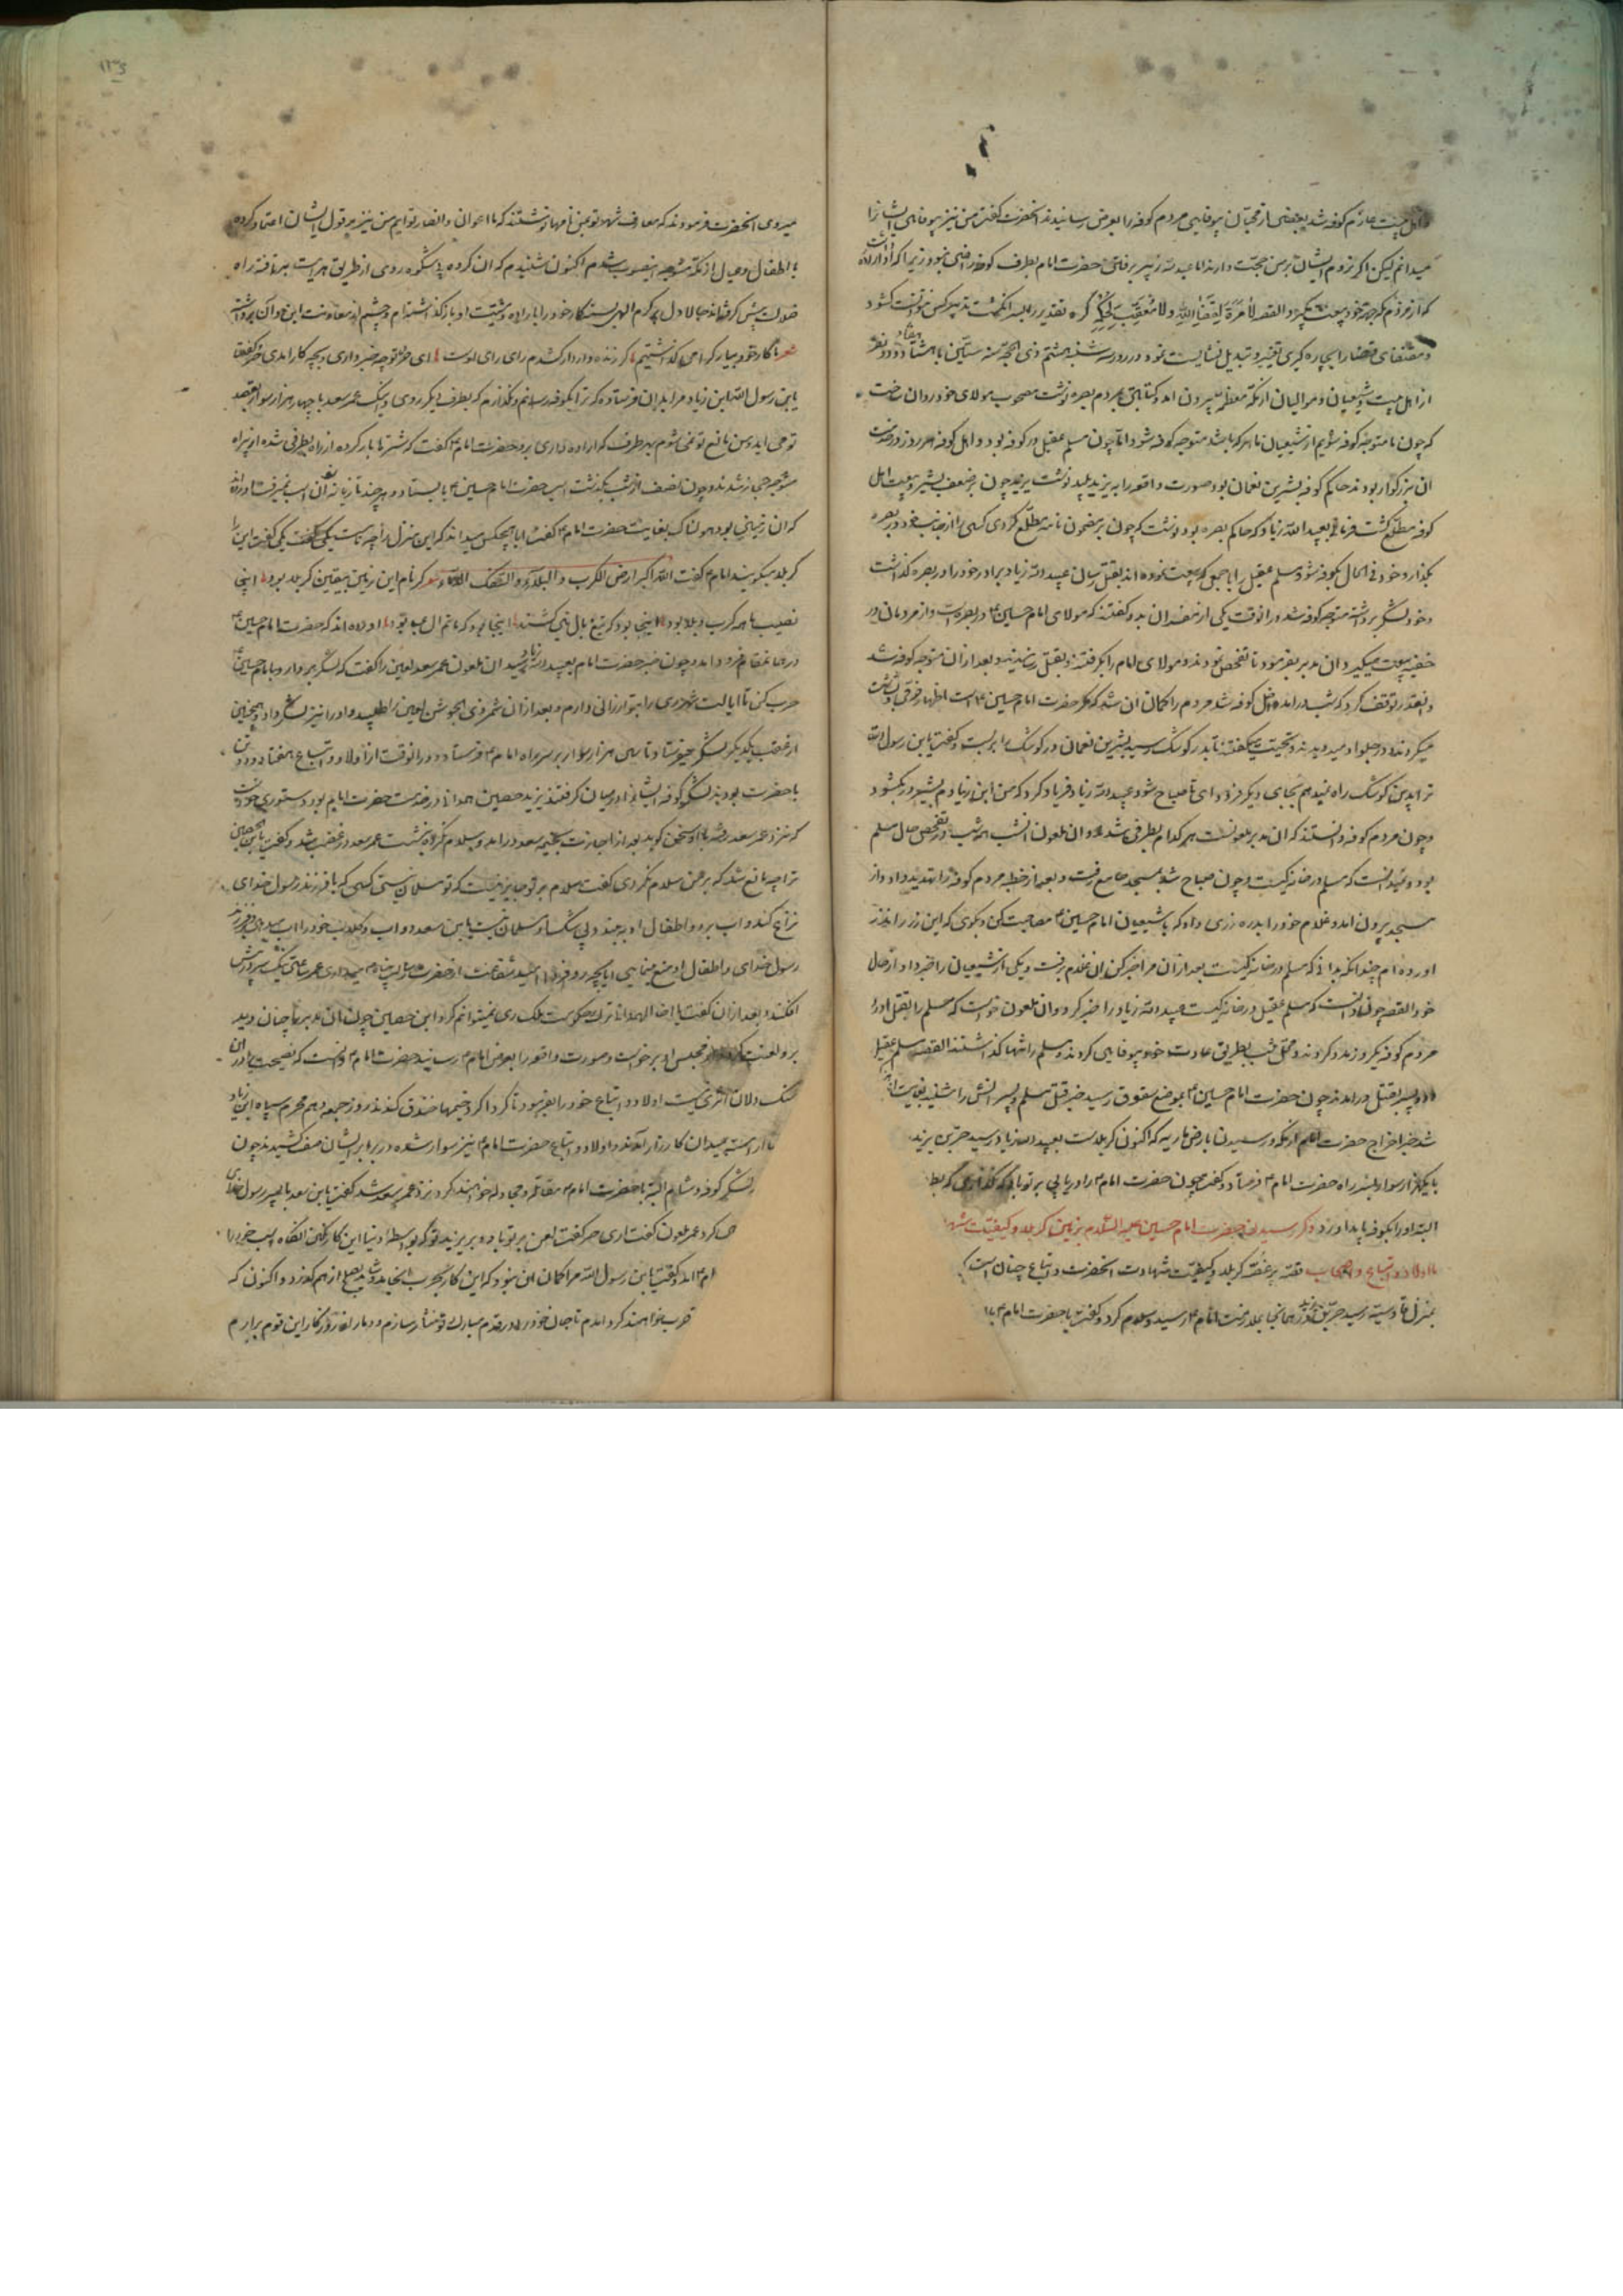 اهل بیت عازم کوفه شد بعضی از محبان بیوفایی مردم کوفه را بعرض رسانیدند آنحضرت گفت من نیز بیوفایی ایشانرا
میدانم لیکن اگر نروم ایشان بر من حجت دارند اما عبدالله زبیر برفتن حضرت امام بطرف کوفه راضی بود زیرا که
که از مردم مکه بجهة خود بیعت بگیرد القصه لا مرد لقضاء الله ولا معقب لحکمه گره تقدیر را بسر انگشت تدبیر کس نتوانست کشود
و مقتضای قضا را بچاره گری تغییر و تبدیل نشایست نمود و در روز سه شنبه هشتم ذی الحجه سنه ستین با هشتاد و دو نفر
از اهل بیت و شیعیان و موالیان از مکه معظمه بیرون امد و کتابتی بمردم بصره نوشت مصحوب مولای خود روان ساخت
که چون ما متوجه کوفه شویم از شیعیان ما هر که باشد متوجه کوفه شود اما چون مسلم عقیل در کوفه بود و اهل کوفه هر روز در خدمت
ان بزرگوار بودند حاکم کوفه بشیر بن نعمان بود صورت واقعه را به یزید پلید نوشت یزید چون بر ضعف بشیر و بیعت اهل
کوفه مطلع گشت فرمانی بعبید الله زیاد که حاکم بصره بود نوشت که چون بر مضمون نامه مطلع گردی کسی را از جانب خود در بصره
بگذار و خود فی الحال بکوفه شو و مسلم عقیل را با جمعی که بیعت نموده اند بقتل رسان عبیدالله زیاد برادر خود را در بصره گذاشت
و خود لشکر برداشته متوجه کوفه شد و در آنوقت یکی از مفسدان بدو گفتند که مولای امام حسین ع در بصره است و از مردمان در
خفیه بیعت میگیرد ان مدبر بفرمود تا تفحص نمودند و مولای امام را بگرفتند و بقتل رسانیدند و بعد از ان متوجه کوفه شد
و انقدر توقف کرد که شب درامد داخل کوفه شد مردم را گمان ان شد که مگر حضرت امام حسین ع است اظهار فرح و بشاشت
میکردند و در جلو او میدویدند و تحیت میگفتند تا بدر کوشک رسید بشیر بن نعمان در کوشک را بر بست و گفت یا بن رسول الله
ترا بدین کوشک راه نمیدهم بجای دیگر فرود ای تا صباح شود عبیدالله زیاد فریاد کرد که من ابن زیادم بشیر در بگشود
و چون مردم کوفه دانستند که ان مدبر ملعونست هر کدام بطرفی شدند و ان ملعون انشب همه شب در تفحص حال مسلم
بود و نمیدانست که مسلم در خانه کیست و چون صباح شد بمسجد جامع رفت و بعد از خطبه مردم کوفه را تهدید داد و از
مسجد بیرون امد و غلام خود را بدره زری داد که با شیعیان امام حسین ع مصاحبت کن و بگوی که این زر را نذر
اورده ام چندانکه بدانی که مسلم در خانه کیست بعد از ان مرا خبر کن ان غلام برفت و یکی از شیعیان را خبر داد و از حال
خود القصه چون دانست که مسلم عقیل در خانه کیست عبیدالله زیاد را خبر کرد و ان ملعون خواست که مسلم را بقتل اورد
مردم کوفه یک روز مدد کردند و محل شب بطریق عادت خود بیوفایی کردند و مسلم را تنها گذاشتند القصه مسلم عقیل
و دو پسر بقتل درامدند چون حضرت امام حسین ع بموضع سقوق رسید خبر قتل مسلم و پسرانش را شنید بغایت
شد خبر اخراج حضرت امام از مکه و رسیدن بارض ماریه که اکنون کربلاست بعبیدالله زیاد رسید حر بن یزید
با یکهزار سوار بسر راه حضرت امام ع فرستاد و گفت چون حضرت امام ع را دریابی بر تو باد که نگذاری که
البته او را بکوفه باید اورد ذکر رسیدن حضرت امام حسین علیه السلام بزمین کربلا و کیفیت شها
با اولاد و اتباع و اصحاب قصه پر غصه کربلا و کیفیت شهادت آنحضرت و اتباع چنان است
بمنزل قادسیه رسید حر بن یزید ریاحی بملازمت امام ع رسید و سلام کرد و گفت یا حضرت امام ع بکجا
میروی آنحضرت فرمودند که معارف شهر تو بمن نامها نوشتند که ما اعوان و انصار توایم من نیز بر قول ایشان اعتماد کرده
با اطفال و عیال از مکه متوجه اینصوب شدم اکنون شنیدم که ان گروه بی شکوه روی از طریق هدایت برتافته راه
ضلالت پیش گرفته اند حالا دل بر کرم الهی بسته کار خود را با اراده و مشیت او باز گذاشته ام و چشم از معاونت این و آن برداشته
شعر ما کار خود بیار گرامی گذاشتیم گر زنده دارد ار کشدم رای رای اوست ای حر تو چه خبر داری و بچه کار امدی حر گفت
یا بن رسول الله ابن زیاد مرا بدان فرستاده که ترا بکوفه رسانم و نگذارم که بطرف دیگر روی و اینک عمر سعد با چهار هزار سوار بقصد
تو می اید و من مانع تو نمی شوم بهر طرف که اراده داری برو حضرت امام ع گفت که شترها بار کرده از راه بطرفی شده او براه
متوجه حجاز شدند و چون نصف از شب بگذشت اسب حضرت امام حسین ع بایستاد و هر چند تازیانه زد ان اسب نمیرفت
که ان زمینی بود هولناک بغایت حضرت امام ع گفت ایا هیچکس میداند که این منزل را چه نام است یکی گفت این را
کربلا میگویند امام ع گفت الله اکبر ارض الکرب و البلاء و السفک الدماء شعر گر نام این زمین بیقین کربلا بود اینجا
نصیب ما همه کرب و بلا بود اینجا بود که تیغ بال نبی کشند اینجا بود که ماتم ال عبا بود اورده اند که حضرت امام حسین ع
در همانمقام فرود امد و چون خبر حضرت امام بعبیدالله زیاد رسید ان ملعون عمر سعد لعین را گفت که لشکر بردار و با امام حسین ع
حرب کن تا ایالت شهر ری را بتو ارزانی دارم و بعد از ان شمر ذی الجوشن لعین را طلبید و او را نیز لشکر داد و همچنین
از عقب یکدیگر لشکر میفرستاد تا سی هزار سوار بر سر راه امام ع فرستاد و در انوقت از اولاد و اتباع هفتاد و دو تن
با حضرت بودند لشکر کوفه ایشانرا در میان گرفتند یزید حصین همدانی در خدمت حضرت امام بود دستوری خواست
که نزد عمر سعد رفته با او سخن گوید بعد از اجازت بخیمه سعد درامد و سلام نکرده بنشست عمر سعد در غضب شد و گفت یا بن حصین
ترا چه مانع شد که بر من سلام نکردی گفت سلام بر تو جایز نیست که تو مسلمان نیستی کسی که با فرزند رسول خدای
نزاع کند و اب بر وی و اطفال او ببندد بی شک او مسلمان نیست یا بن سعد دواب و کلاب خود را اب میدهی و فرزند
رسول خدای و اطفال او منع مینمایی ایا بچه رو فردا امید شفاعت از حضرت رسالت پناه میداری عمر ساعتی نیک سر در پیش
افکند و بعد از ان گفت یا اخا الهمدانی ترک حکومت ملک ری نمیتوانم کرد ابن حصین چون ان مدبر را چنان دید
بر و لعنت کرد و از مجلس او برخواست و صورت واقعه را بعرض امام ع رسانید حضرت امام ع دانست که نصیحت را در ان
سنگ دلان اثری نیست اولاد و اتباع خود را بفرمود تا گردا گرد خیمها خندق کندند روز جمعه دهم محرم سپاه ابن زیاد
اراسته بمیدان کارزار آمدند و اولاد و اتباع حضرت امام ع نیز سوار شده در برابر ایشان صف کشیدند چون
لشکر کوفه و شام البته با حضرت امام ع مقاتله و مجادله خواهند کرد نزد عمر سعد شد گفت یا بن سعد با پسر رسول خدای
کرد عمر ملعون گفت اری حر گفت لعن بر تو باد و بر یزید تو گر بواسطه دنیا این کار کنی انگاه اسب خود را
امام ع امد و گفت یا بن رسول الله مرا گمان این نبود که این کار بحرب انجامد و بصلح از هم گذرد و اکنون که
حرب خواهند کرد امدم تا جان خود را در قدم مبارک تو نثار سازم و دمار از روزگار این قوم برارم